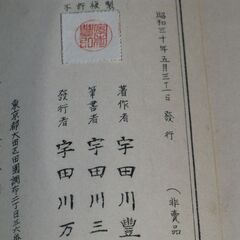 昭和三十年五月三十一日 發行
(非賣品)
著作者 宇田川豊
筆書者 宇田川三
發行者 宇田川万
不許複製
東京都大田区田園調布二丁目三六